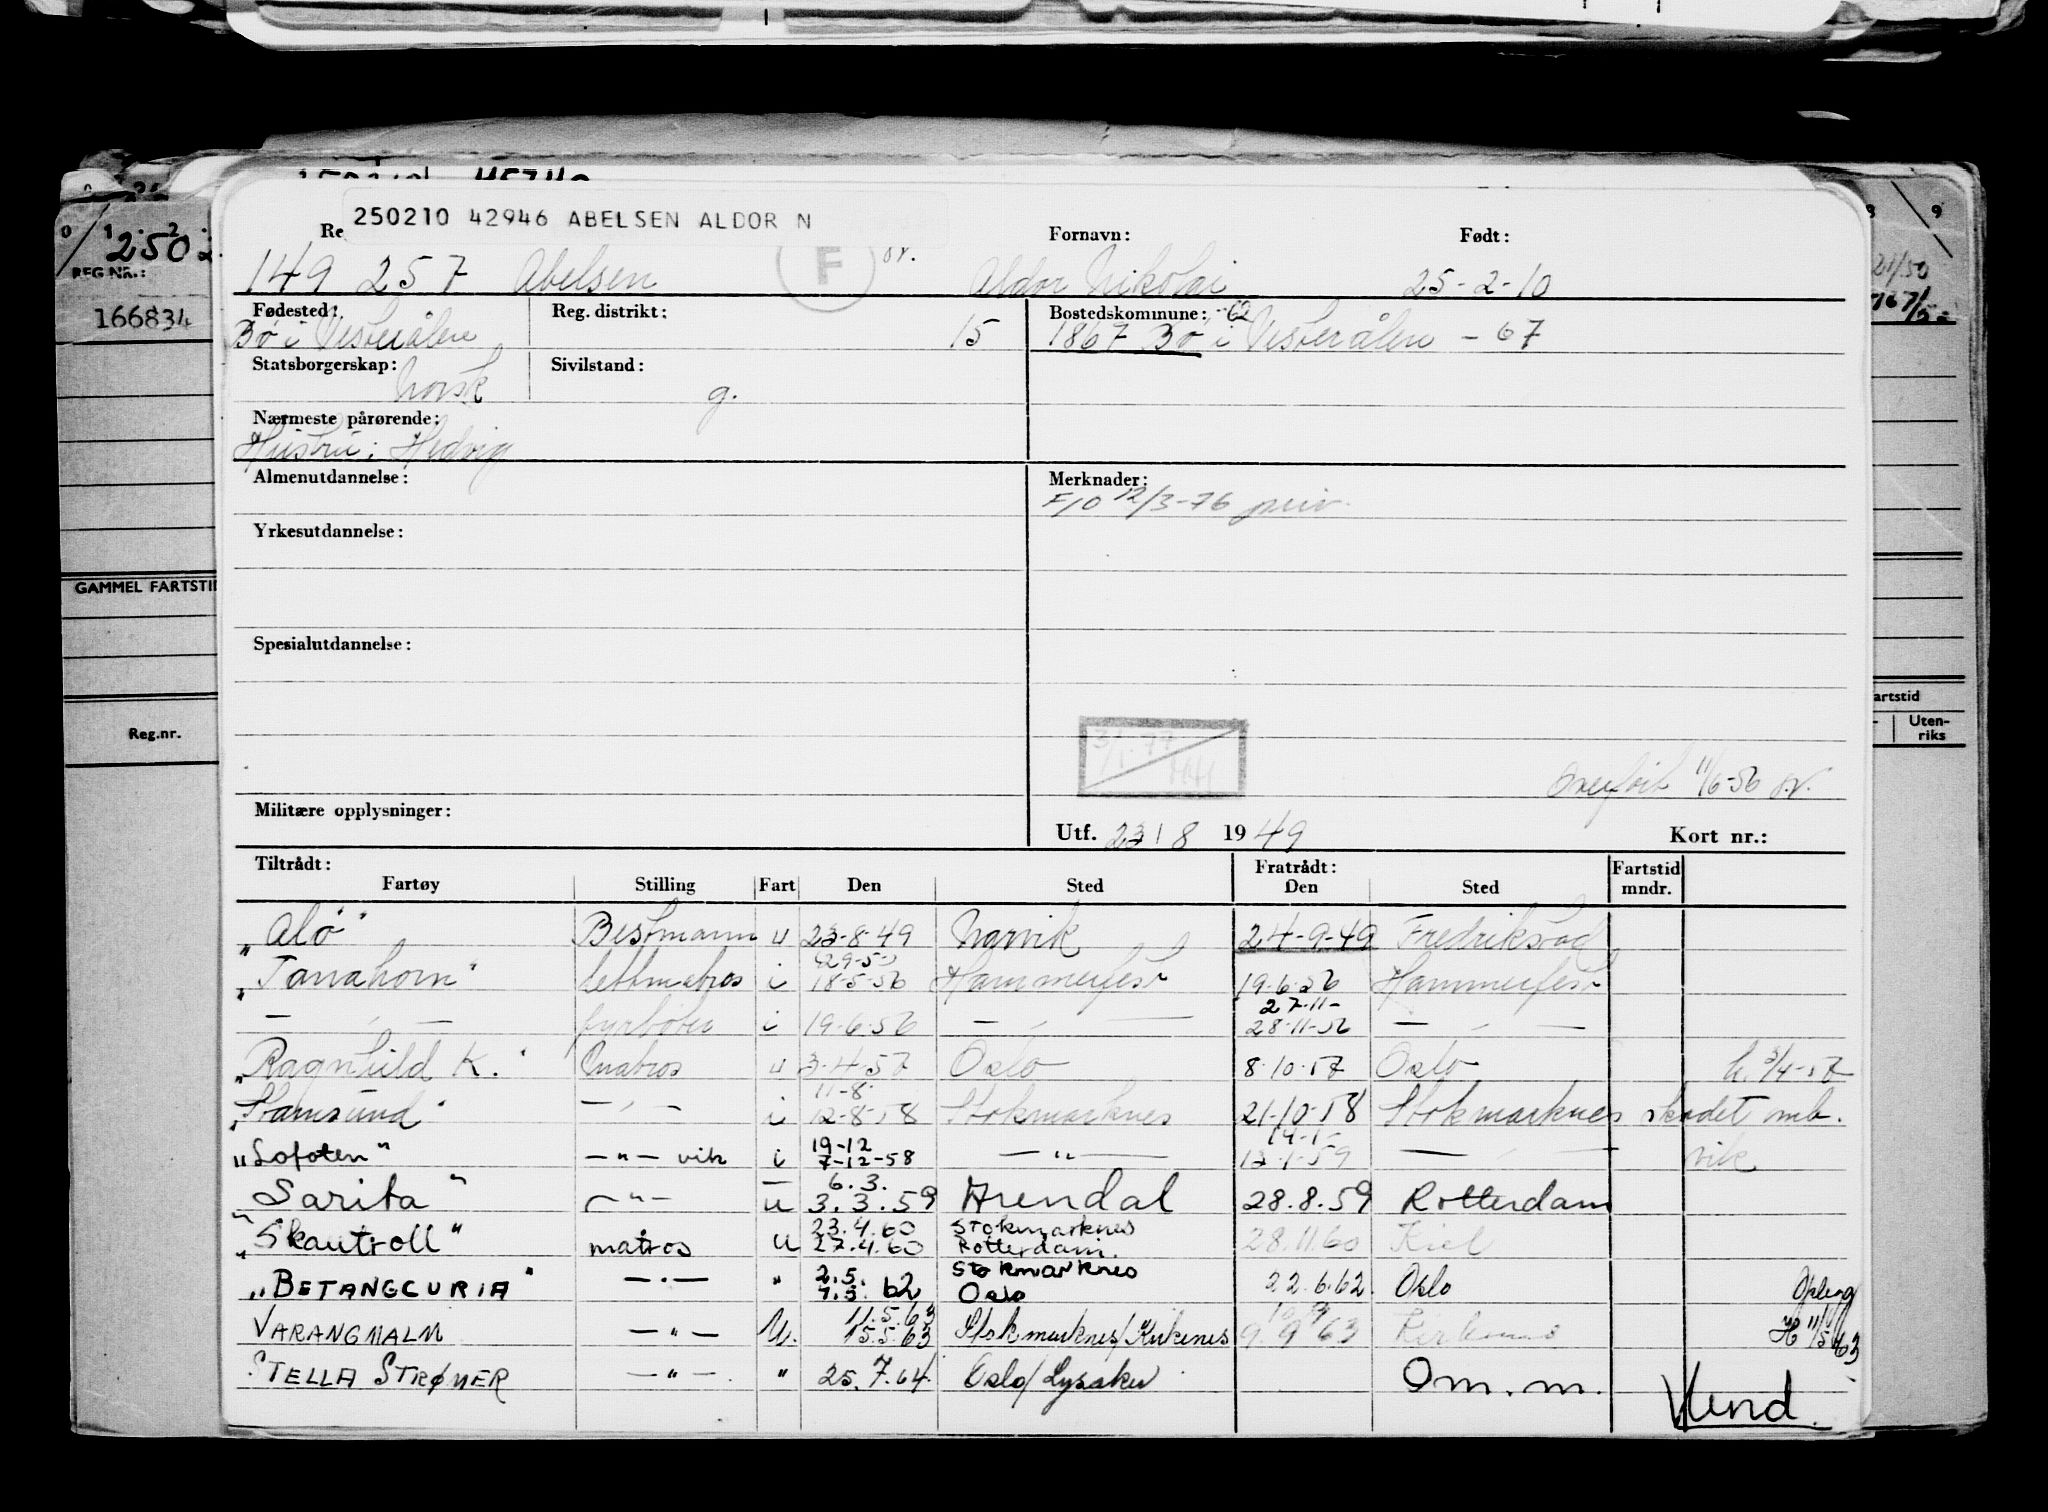 0 1 2
250
REG.NR.:
166834
GAMMEL FARTSTI
Reg.nr.
8 9
21/50
artstid
Uten-
riks
250210 42946 ABELSEN ALDOR N
Re F or. Fornavn: Født:
149 257 Abelsen Aldor Nikolai 25-2-10
Fødested: Reg. distrikt: Bostedskommune: -62
Bø i Vesterålen 15 1867 Bø i Vesterålen - 67
Statsborgerskap: Sivilstand:
Norsk g.
Nærmeste pårørende:
Hustru: Hedvig
Almenutdannelse: Merknader:
F/O 12/3-76
Yrkesutdannelse:
Spesialutdannelse:
3/1-77
HH
Overført 11/6-56
Militære opplysninger:
Utf. 23/8 1949 Kort nr.:
Tiltrådt: Fratrådt: Fartstid
Fartøy Stilling Fart Den Sted Den Sted mndr.
"Alø" Bestmann u 23-8-49 Narvik 24-9-49 Fredriksstad
"Tanahorn" lettmatros i 18-5-56 Hammerfest 19-6-56 Hammerfest
27-11-
— " — fyrbøter i 19-6-56 — " — 28-11-56 — " —
"Ragnhild K." Matros u 3-4-57 Oslo 8-10-57 Oslo h. 3/4-57
11-8
"Stamsund" — " — i 12-8-58 Stokmarknes 21-10-58 Stokmarknes skadet mb.
19-12 14-1-
"Lofoten" — " — vik i 7-12-58 — " — 13-1-59 — " — vik
6.3.
"Sarita" — " — u 3.3.59 Arendal 28.8.59 Rotterdam
23.4.60 Stokmarknes
"Skautroll" matros u 27.4.60 Rotterdam. 28.11.60 Kiel
2.5. Stokmarknes
"BETANGCURIA" — " — " 7.5. 62 Oslo 22.6.62 Oslo
11.5.63
VARANGMALM — " — U. 15.5.63 Stokmarknes/Kirkenes 9.9 63 Kirkenes H 11/5 63
STELLA STRØMER — " — " 25.7.64 Oslo/Lysaker Om. m.
Vend.